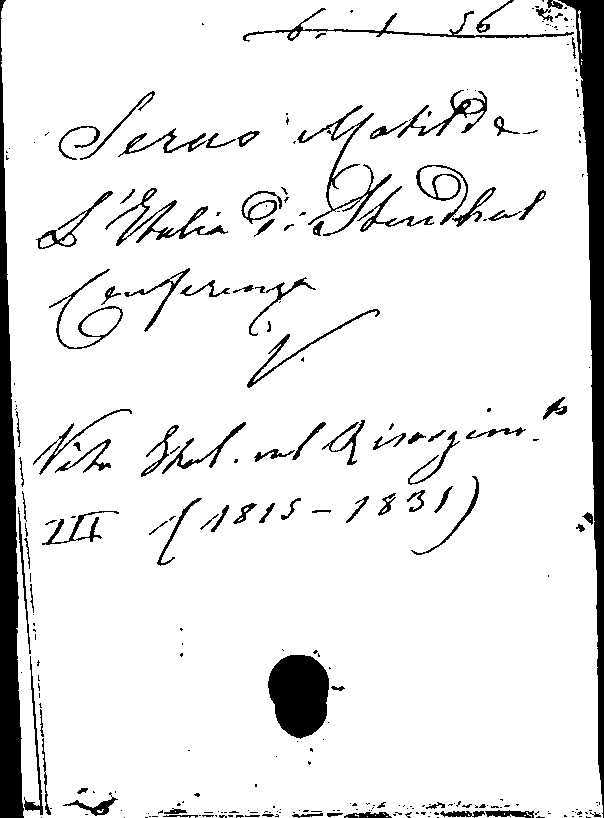 6. 1 56
Serao Matilde
L'Italia di Stendhal
Conferenza
V.
Vita Ital. nel Risorgim.to
III (1815-1831)